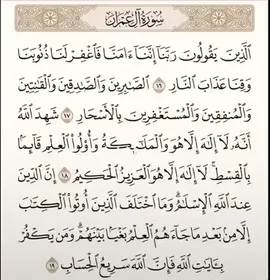 سُورَةُ آلِ عِمْرَان
ٱلَّذِينَ يَقُولُونَ رَبَّنَآ إِنَّنَآ ءَامَنَّا فَٱغْفِرْ لَنَا ذُنُوبَنَا
وَقِنَا عَذَابَ ٱلنَّارِ ١٦ ٱلصَّٰبِرِينَ وَٱلصَّٰدِقِينَ وَٱلْقَٰنِتِينَ
وَٱلْمُنفِقِينَ وَٱلْمُسْتَغْفِرِينَ بِٱلْأَسْحَارِ ١٧ شَهِدَ ٱللَّهُ
أَنَّهُۥ لَآ إِلَٰهَ إِلَّا هُوَ وَٱلْمَلَٰٓئِكَةُ وَأُو۟لُوا۟ ٱلْعِلْمِ قَآئِمًۢا
بِٱلْقِسْطِ لَآ إِلَٰهَ إِلَّا هُوَ ٱلْعَزِيزُ ٱلْحَكِيمُ ١٨ إِنَّ ٱلدِّينَ
عِندَ ٱللَّهِ ٱلْإِسْلَٰمُ وَمَا ٱخْتَلَفَ ٱلَّذِينَ أُوتُوا۟ ٱلْكِتَٰبَ
إِلَّا مِنۢ بَعْدِ مَا جَآءَهُمُ ٱلْعِلْمُ بَغْيًۢا بَيْنَهُمْ وَمَن يَكْفُرْ
بِـَٔايَٰتِ ٱللَّهِ فَإِنَّ ٱللَّهَ سَرِيعُ ٱلْحِسَابِ ١٩